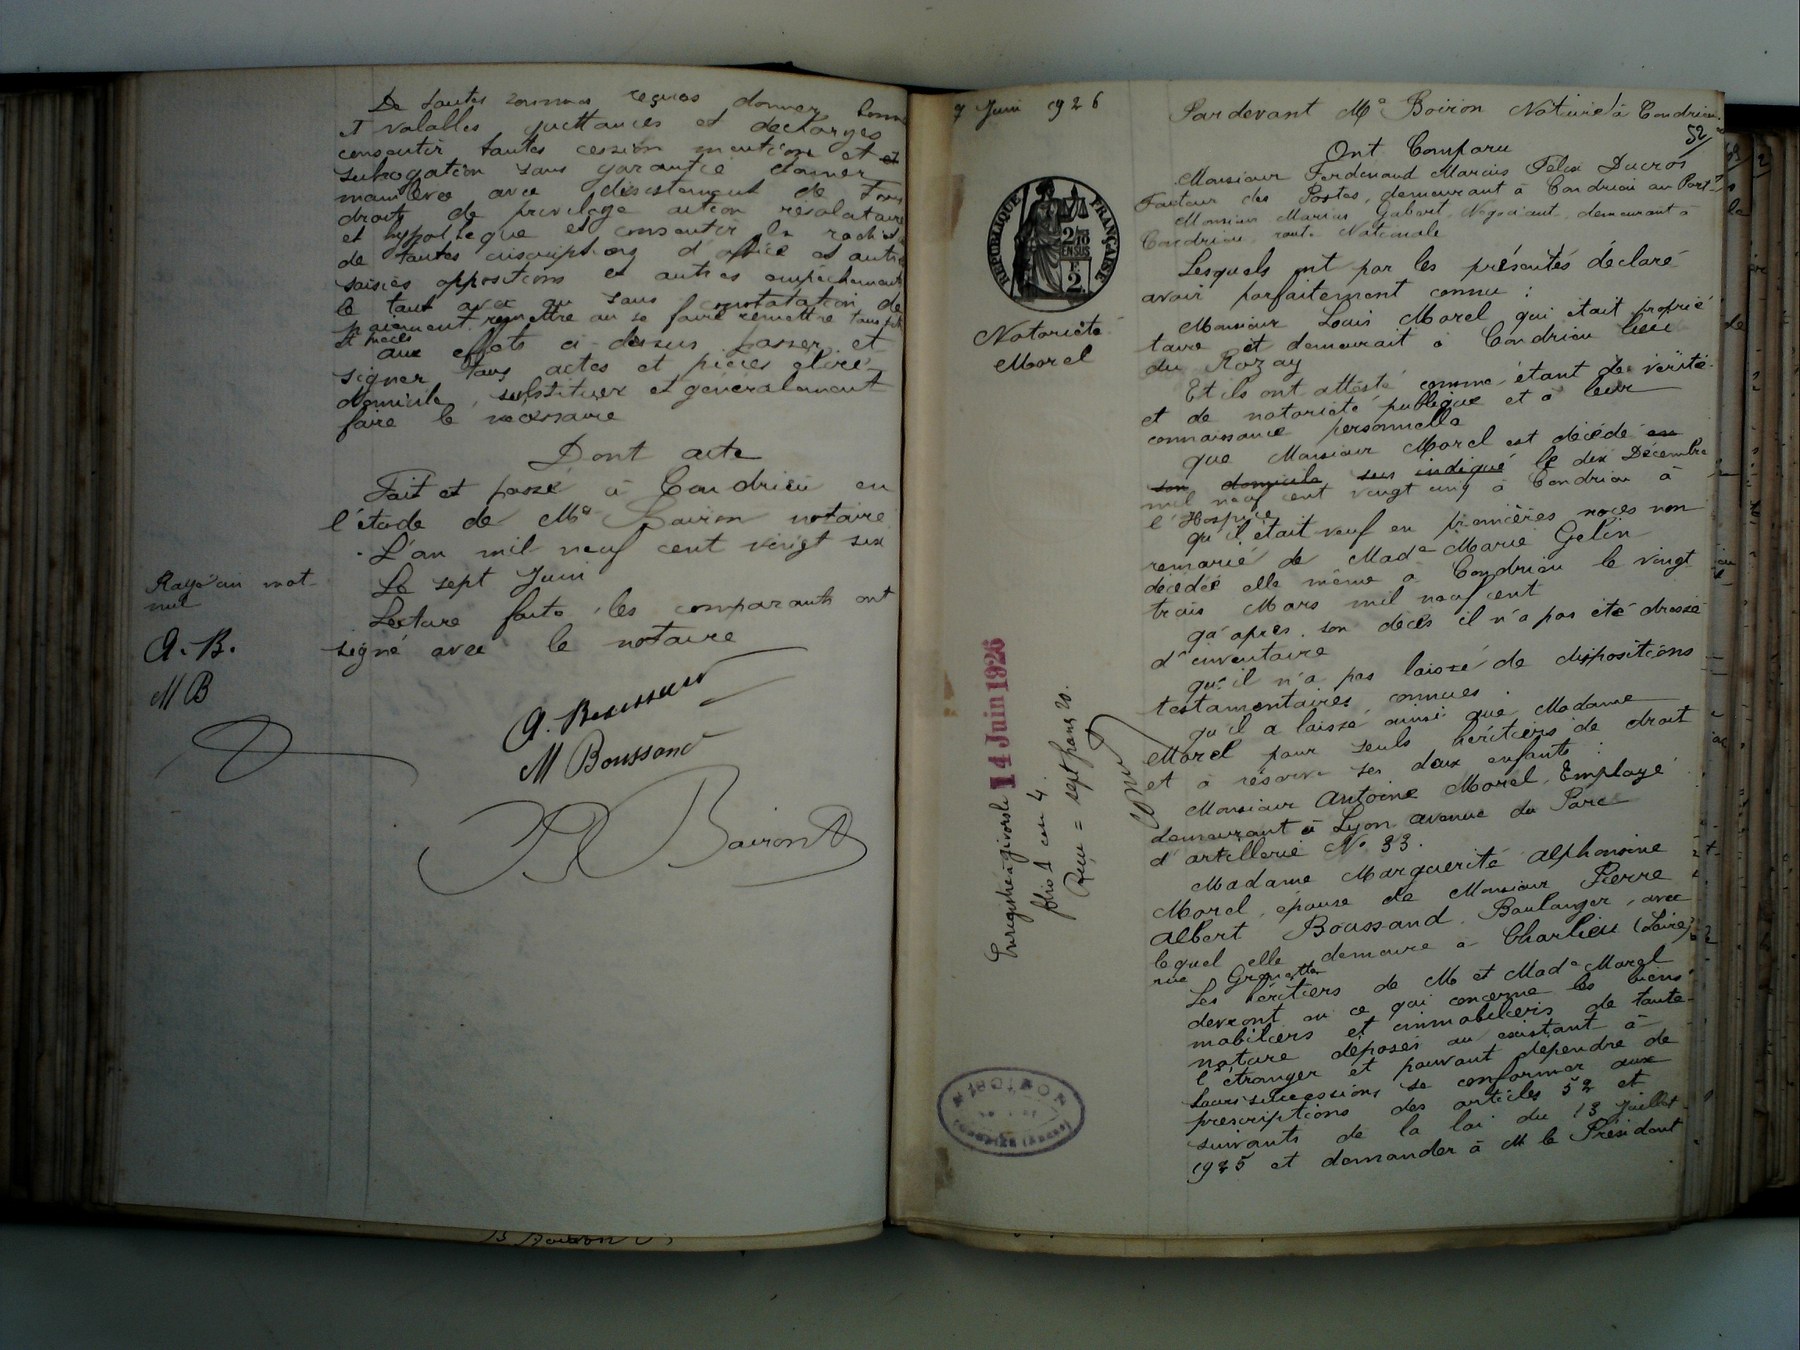 De toutes sommes reçues donner bonnes
et valables quittances et décharges
consentir toutes cession mention et et
subrogation sans garantie donner
mainlevée avec désistement de tous
droits de privilège action résolutoire
et hypothèque et consentir la radiation
de toutes inscriptions d'office et autres
saisies oppositions et autres empêchements
le tout avec ou sans constatation de
paiement. remettre ou se faire remettre tous titres
et pièces
aux effets ci dessus passer et
signer tous actes et pièces élire
domicile, substituer et généralement
faire le nécessaire
Dont acte
Fait et passé à Condrieu en
l'étude de Me Boiron notaire
L'an mil neuf cent vingt six
Le sept Juin
Lecture faite, les comparants ont
signé avec le notaire
Rayé un mot
nul
A. B.
M B
A. Boussand
M Boussand
Boiron
7 Juin 1926
RÉPUBLIQUE FRANÇAISE
2/10
EN SUS
2
Notoriété
Morel
Enregistré à Givors le 14 Juin 1926
folio 1 case 4.
Reçu = sept francs 20.
Par devant Me Boiron Notaire à Condrieu
52
Ont Comparu
Monsieur Ferdinand Marius Félix Ducros
Facteur des Postes, demeurant à Condrieu au Port
Monsieur Marius Gabert, Négociant, demeurant à
Condrieu, route Nationale
Lesquels ont par les présentes déclaré
avoir parfaitement connu :
Monsieur Louis Morel qui était proprié
taire et demeurait à Condrieu lieu
du Rozay
Et ils ont attesté comme étant de vérité
et de notoriété publique et à leur
connaissance personnelle
que Monsieur Morel est décédé en
son domicile sus indiqué le dix Décembre
mil neuf cent vingt cinq à Condrieu à
l'Hospice
qu'il était veuf en premières noces non
remarié de Made Marie Gelin
décédée elle même à Condrieu le vingt
trois Mars mil neuf cent
qu'après son décès il n'a pas été dressé
d'inventaire
qu'il n'a pas laissé de dispositions
testamentaires connues
qu'il a laissé ainsi que Madame
Morel pour seuls héritiers de droit
et à réserve ses deux enfants :
Monsieur Antoine Morel, Employé
demeurant à Lyon avenue du Parc
d'artillerie No 33.
Madame Marguerite Alphonsine
Morel, épouse de Monsieur Pierre
Albert Boussand, Boulanger, avec
lequel elle demeure à Charlieu (Loire)
rue
Les héritiers de M et Made Morel
devront en ce qui concerne les biens
mobiliers et immobiliers de toute
nature déposés ou existant à
l'étranger et pouvant dépendre de
leurs successions se conformer aux
prescriptions des articles 52 et
suivants de la loi du 13 Juillet
1925 et demander à M le Président